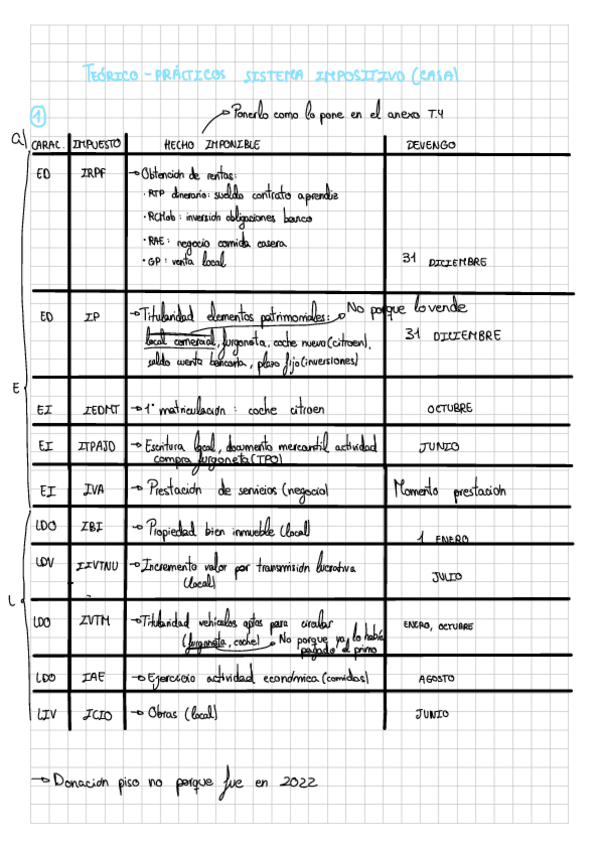 TEÓRICO-PRÁCTICOS SISTEMA IMPOSITIVO (CASA)
1
→ Ponerlo como lo pone en el anexo T.4
a)
CARAC. IMPUESTO HECHO IMPONIBLE DEVENGO
ED IRPF → Obtención de rentas:
· RTP dinerario: sueldo contrato aprendiz
· RCMob: inversión obligaciones banco
· RAE: negocio comida casera
· GP: venta local
31 DICIEMBRE
ED IP → Titularidad elementos patrimoniales: → No porque lo vende
local comercial, furgoneta, coche nuevo (citroen),
31 DICIEMBRE
saldo cuenta bancaria, plazo fijo (inversiones)
E
EI IEDMT → 1ª matriculación: coche citroen OCTUBRE
EI ITPAJD → Escritura local, documento mercantil actividad JUNIO
compra furgoneta (TPO)
EI IVA → Prestación de servicios (negocio) Momento prestación
LDO IBI → Propiedad bien inmueble (local) 1 ENERO
LDV IIVTNU → Incremento valor por transmisión lucrativa
(local) JULIO
L
LDO IVTM → Titularidad vehículos aptos para circular ENERO, OCTUBRE
(furgoneta, coche) → No porque ya lo había
pagado el primo
LDO IAE → Ejercicio actividad económica (comidas) AGOSTO
LIV ICIO → Obras (local) JUNIO
→ Donación piso no porque fue en 2022